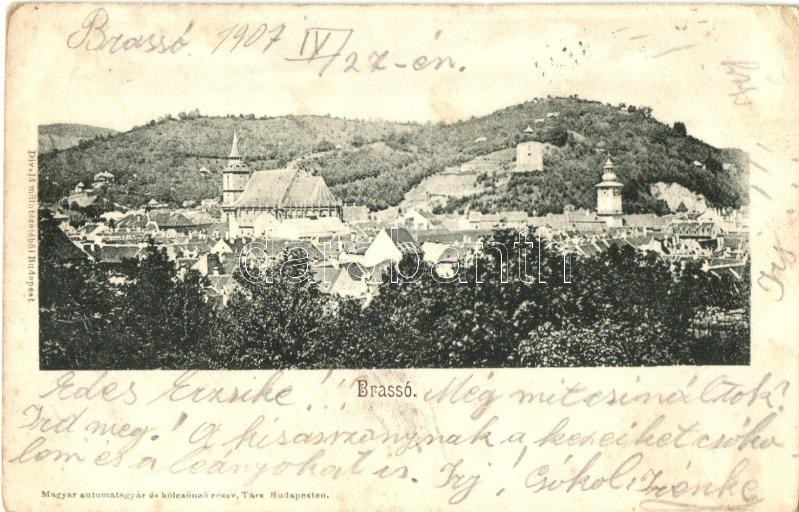 Brassó 1907 IV/27-én.
Divald műintézetéből Budapest
darabanth
Irj!!!
Edes Erzsike!!
Brassó.
Még mit csináltok?
Ird meg! A kisasszonynak a kezeiket csóko
lom és a leányokat is. Irj! Csókol Irénke
Magyar automatagyár és kölcsönző részv. Társ Budapesten.